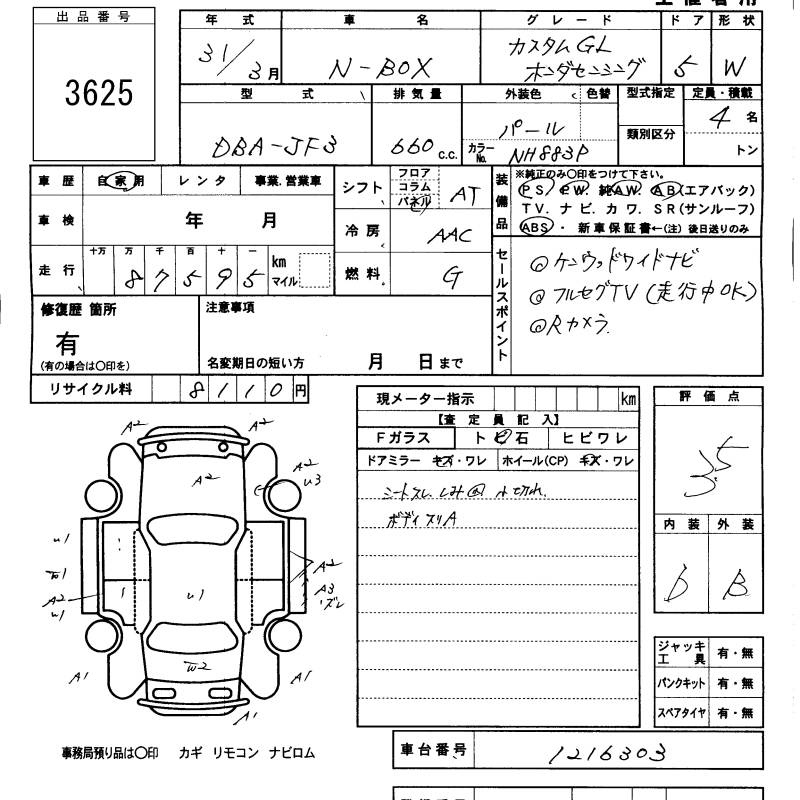 出品番号
3625
年式 車名 グレード ドア 形状
31/3月 N-BOX カスタムGL ホンダセンシング 5 W
型式 排気量 外装色 色替 型式指定 定員・積載
DBA-JF3 660 c.c. パール 類別区分 4名
カラーNo. NH883P トン
車歴 自家用 レンタ 事業.営業車
車検 年 月
走行 十万 万 千 百 十 一
87595 km マイル
シフト フロア コラム パネル AT
冷房 AAC
燃料 G
装備品
※純正のみ○印をつけて下さい。
PS. PW. 純AW. AB(エアバック)
TV. ナビ. カワ. SR(サンルーフ)
ABS・ 新車保証書←(注) 後日送りのみ
セールスポイント
◎ケンウッドワイドナビ
◎フルセグTV (走行中OK)
◎Rカメラ.
修復歴 箇所
有
(有の場合は○印を)
注意事項
名変期日の短い方 月 日まで
リサイクル料 8110円
現メーター指示 km
【査定員記入】
Fガラス トビ石 ヒビワレ
ドアミラー キズ・ワレ ホイール(CP) キズ・ワレ
シートスレ しみ
ボディスリA
評価点
3.5
内装 外装
D B
A2 A2
A2 A2
U3
U1
W1
A2
U1
U1
A2
A3
ズレ
W2
A1 A1
A1
ジャッキ工具 有・無
パンクキット 有・無
スペアタイヤ 有・無
事務局預り品は○印 カギ リモコン ナビロム
車台番号 1216303